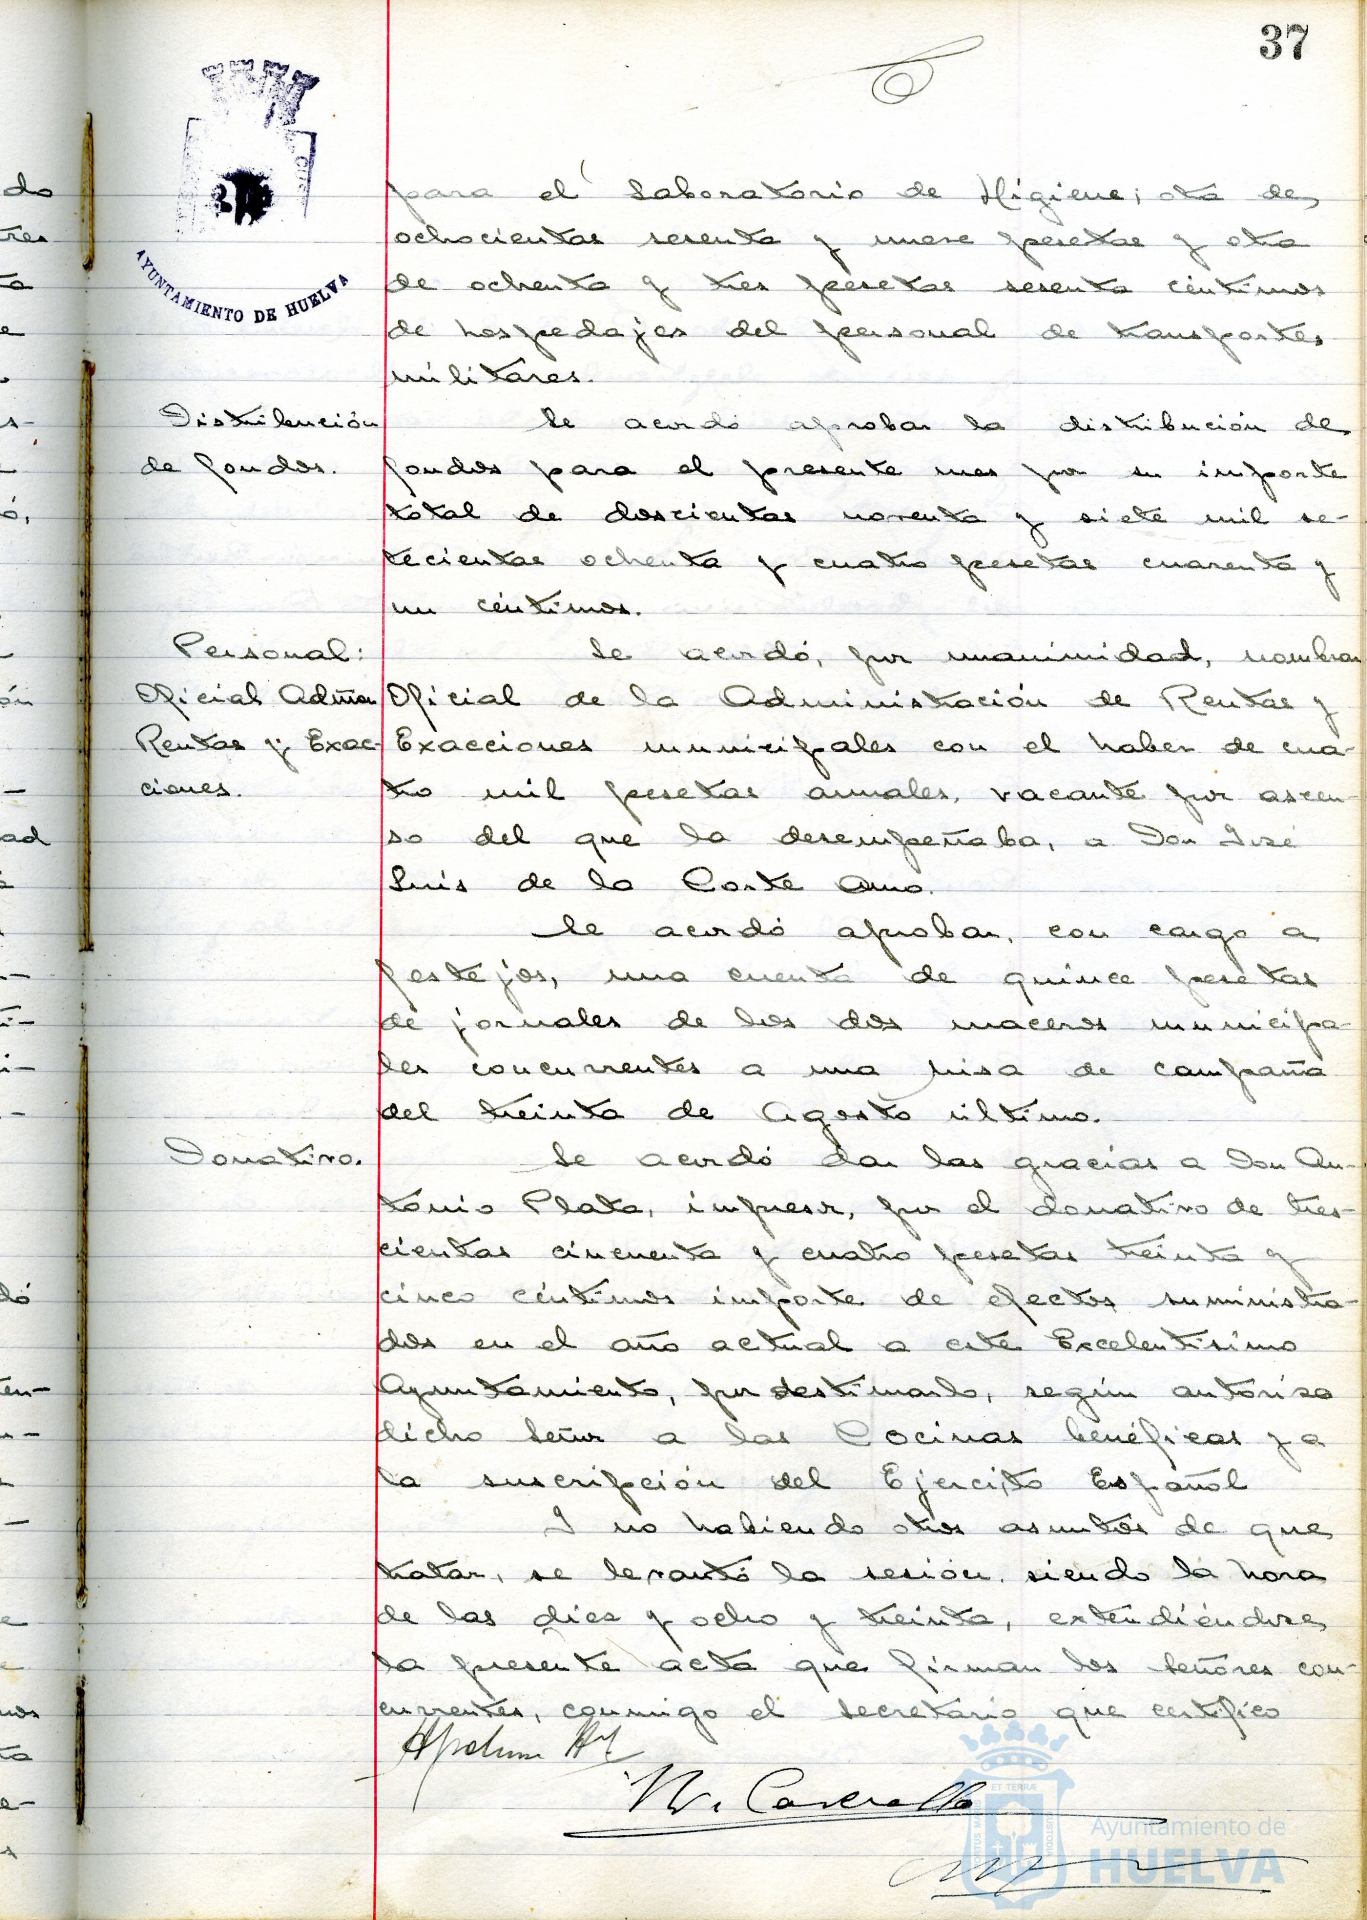 37
AYUNTAMIENTO DE HUELVA
para el Laboratorio de Higiene; otra de
ochocientas sesenta y nueve pesetas y otra
de ochenta y tres pesetas sesenta céntimos
de hospedajes del personal de transportes
militares.
Distribución
de fondos.
Se acordó aprobar la distribución de
fondos para el presente mes por su importe
total de doscientas noventa y siete mil se-
tecientas ochenta y cuatro pesetas cuarenta y
un céntimos.
Personal:
Oficial Admón
Rentas y Exac-
ciones.
Se acordó, por unanimidad, nombrar
Oficial de la Administración de Rentas y
Exacciones municipales con el haber de cua-
tro mil pesetas anuales, vacante por ascen-
so del que la desempeñaba, a Don José
Luis de la Corte
Se acordó aprobar, con cargo a
festejos, una cuenta de quince pesetas
de jornales de los dos maceros municipa-
les concurrentes a una misa de campaña
del treinta de Agosto último.
Donativo.
Se acordó dar las gracias a Don An-
tonio Plata, impresor, por el donativo de tres-
cientas cincuenta y cuatro pesetas treinta y
cinco céntimos importe de efectos suministra-
dos en el año actual a este Excelentísimo
Ayuntamiento, por destinarlo, según autoriza
dicho Señor a las Cocinas benéficas y a
la suscripción del Ejercito Español
Y no habiendo otros asuntos de que
tratar, se levantó la sesión, siendo la hora
de las diez y ocho y treinta, extendiéndose
la presente acta que firman los señores con-
currentes, conmigo el secretario que certifico
Ayuntamiento de
HUELVA